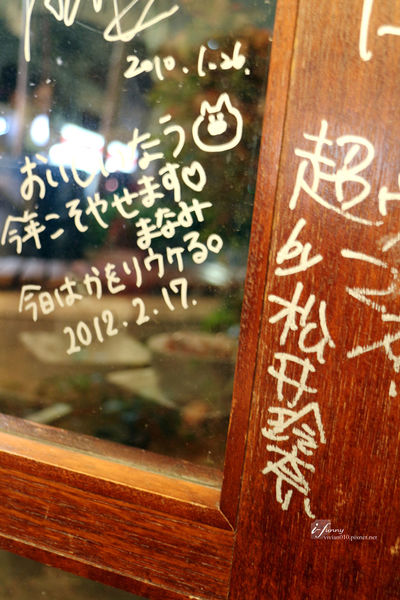 2010.1.26.
おいしいなう
今年こそやせます♡
まなみ
今日はかをリウケる。
2012.2.17.
超
by 松井玲奈
i-funny
vivian010.pixnet.net